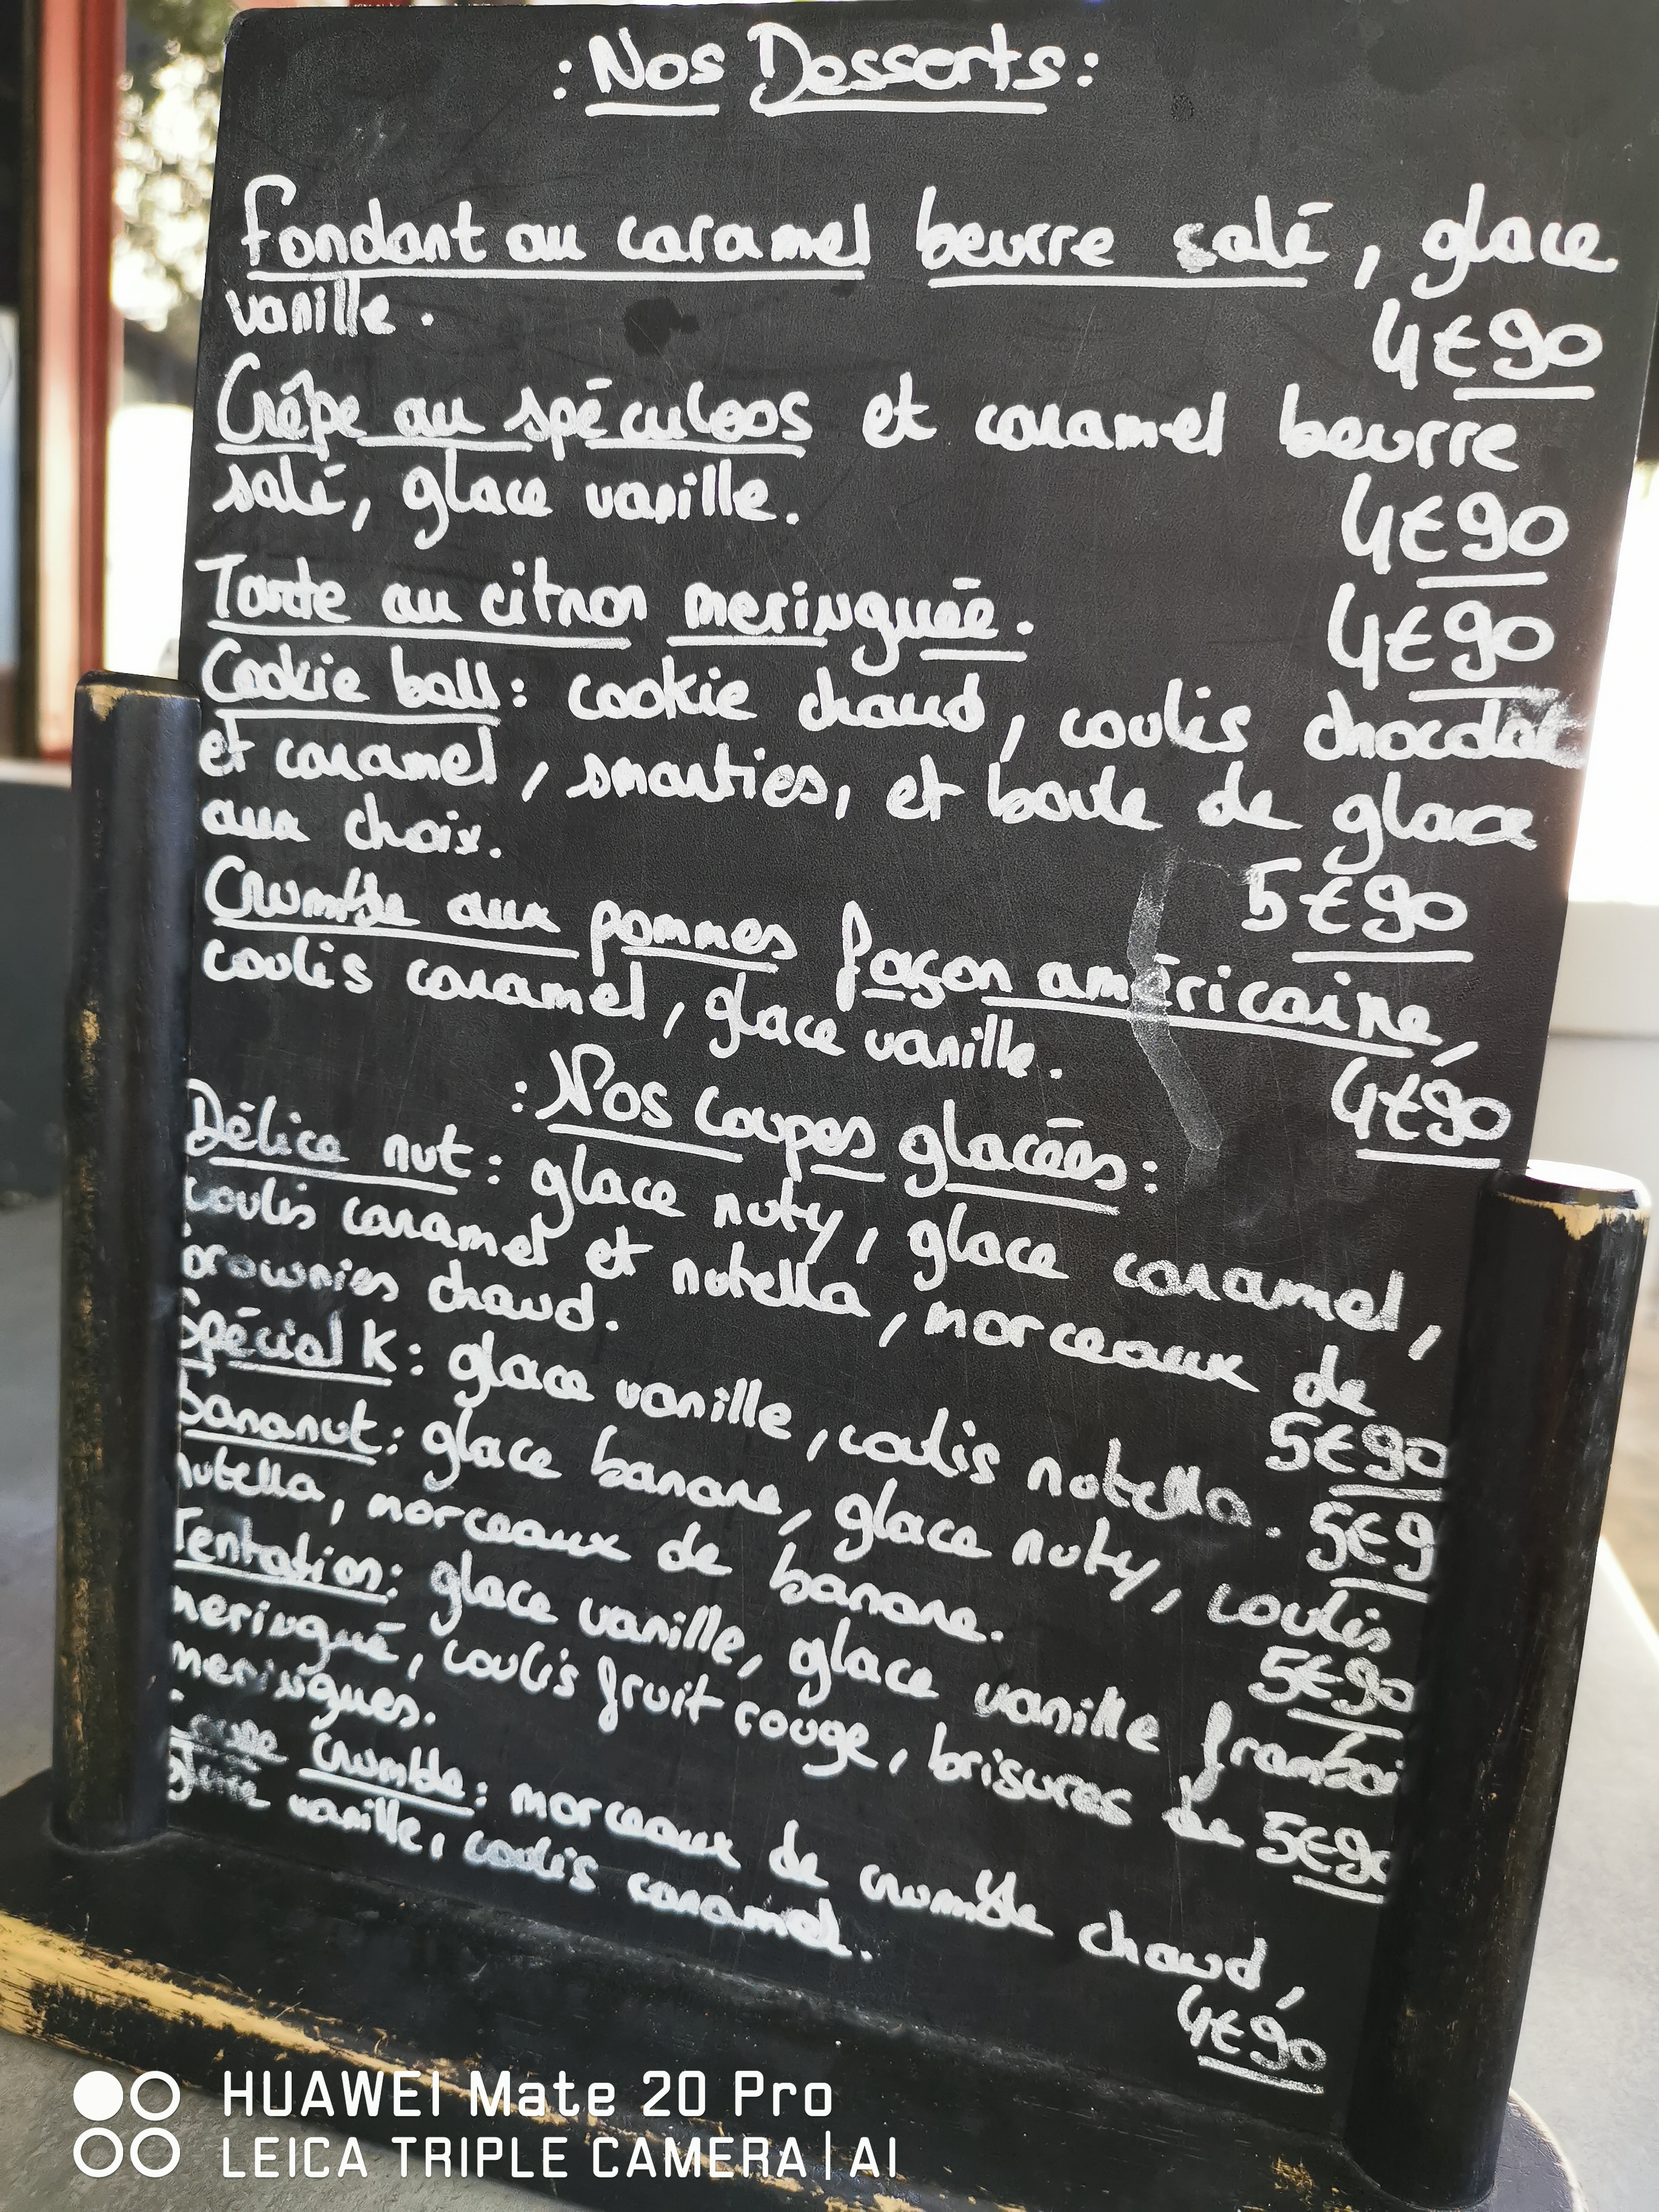 : Nos Desserts :
Fondant au caramel beurre salé, glace
vanille. 4€90
Crêpe au spéculoos et caramel beurre
salé, glace vanille. 4€90
Tarte au citron meringuée. 4€90
Cookie ball : cookie chaud, coulis chocolat
et caramel, smarties, et boule de glace
aux choix. 5€90
Crumble aux pommes façon américaine,
coulis caramel, glace vanille. 4€90
: Nos Coupes glacées :
Délice nut : glace nuty, glace caramel,
coulis caramel et nutella, morceaux de
brownies chaud. 5€90
Spécial K : glace vanille, coulis nutella. 5€9
Bananut : glace banane, glace nuty, coulis
nutella, morceaux de banane. 5€90
Tentation : glace vanille, glace vanille framboi
meringué, coulis fruit rouge, brisures de 5€90
meringues.
Crumble : morceaux de crumble chaud,
glace vanille, coulis caramel. 4€90
HUAWEI Mate 20 Pro
LEICA TRIPLE CAMERA | AI